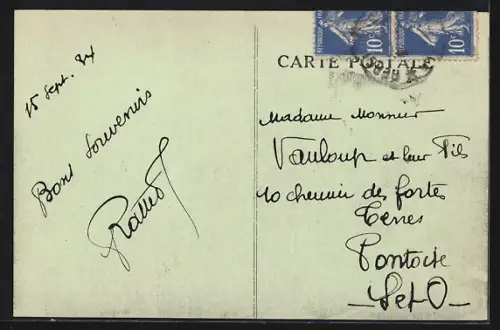 15 Sept. 34
Bons Souvenirs
CARTE POSTALE
10c
10c
Madame Monsieur
Vauloup et leur Fils
10 chemin des fortes
Terres
Pontoise
S et O